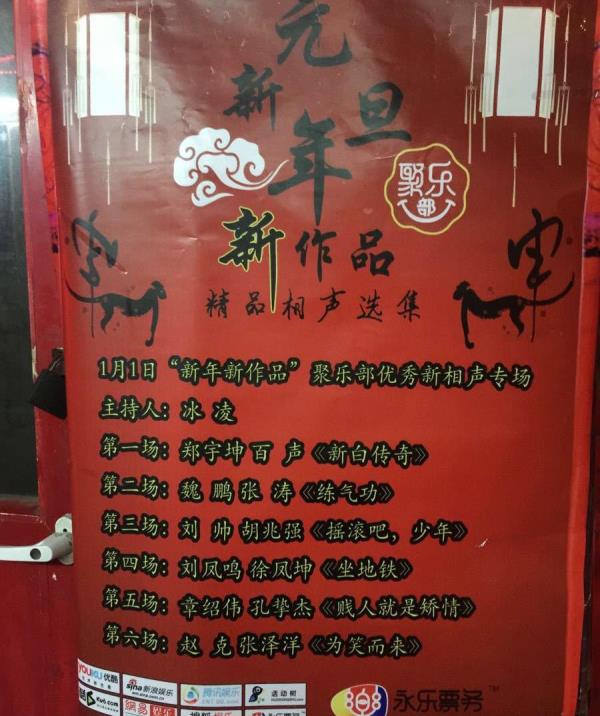 元旦
新年
聚乐部
新作品
精品相声选集
1月1日“新年新作品”聚乐部优秀新相声专场
主持人：冰 凌
第一场：郑宇坤 百 声《新白传奇》
第二场：魏 鹏 张 涛《练气功》
第三场：刘 帅 胡兆强《摇滚吧，少年》
第四场：刘凤鸣 徐凤坤《坐地铁》
第五场：章绍伟 孔挚杰《贱人就是矫情》
第六场：赵 克 张泽洋《为笑而来》
YOUKU 优酷
sina 新浪娱乐
腾讯娱乐
ENT.QQ.com
活动树
永乐票务™
Ku6.com
網易 娱乐